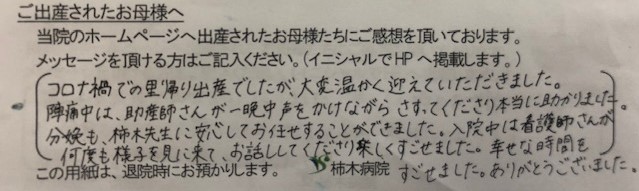 ご出産されたお母様へ
当院のホームページへ出産されたお母様たちにご感想を頂いております。
メッセージを頂ける方はご記入ください。(イニシャルでHPへ掲載します。)
コロナ禍での里帰り出産でしたが、大変温かく迎えていただきました。
陣痛中は、助産師さんが一晩中声をかけながら さすってくださり本当に助かりました。
分娩も、柿木先生に安心してお任せすることができました。入院中は看護師さんが
何度も様子を見に来て、お話ししてくださり楽しくすごせました。幸せな時間を
この用紙は、退院時にお預かりします。 柿木病院 すごせました。ありがとうございました。